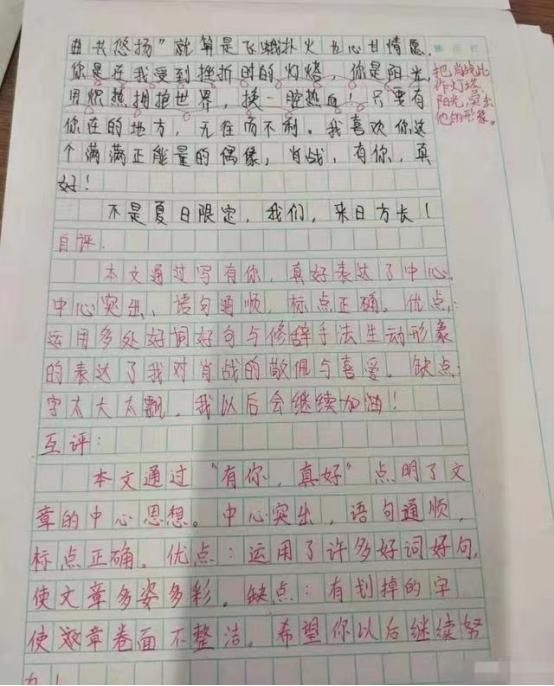 曲共悠扬”就算是飞蛾扑火也心甘情愿.
你是在我受到挫折时的灯塔,你是阳光,
用炽热拥抱世界,换一腔热血。只要有
你在的地方,无往而不利。我喜欢你这
个满满正能量的偶像,肖战,有你,真
好!
不是夏日限定,我们,来日方长!
把肖战比
作灯塔,
阳光,
他的形象。
自评:
本文通过写有你,真好表达了中心,
中心突出、语句通顺,标点正确。优点:
运用多处好词好句与修辞手法生动形象
的表达了我对肖战的敬佩与喜爱。缺点:
字太大太飘,我以后会继续加油!
互评:
本文通过“有你,真好”点明了文
章的中心思想。中心突出,语句通顺,
标点正确。优点:运用了许多好词好句,
使文章多姿多彩。缺点:有划掉的字
使文章卷面不整洁。希望你以后继续努
力!